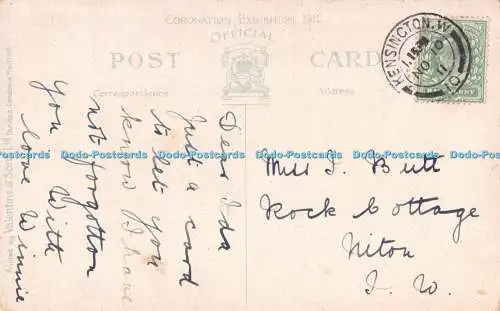 CORONATION EXHIBITION, 1911.
OFFICIAL
POST CARD
Correspondence
Address
KENSINGTON. W
NO 10
11
Dear Ida
Just a card
to let you
know I have
not forgotton
you With
love Winnie
Miss I. Butt
Rock Cottage
Niton
I. W.
Printed by Valentine & Sons Ltd
Dodo-Postcards Dodo-Postcards Dodo-Postcards Dodo-Postcards